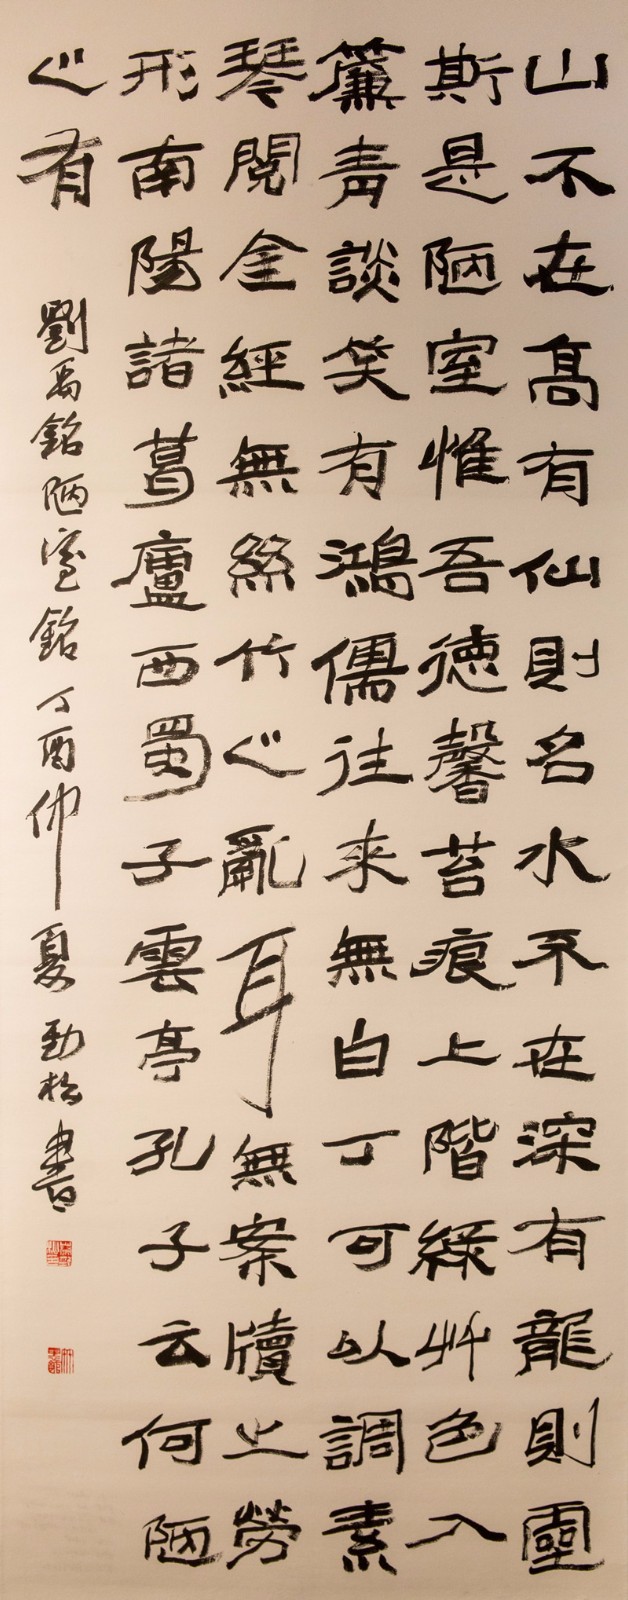 山不在髙有仙則名水不在深有龍則靈
斯是陋室惟吾徳馨苔痕上階綠艸色入
簾青談笑有鴻儒往来無白丁可以調素
琴閱金經無絲竹之亂耳無案牘之勞
形南陽諸葛廬西蜀子雲亭孔子云何陋
之有
劉禹銘陋室銘丁酉仲夏勁松書